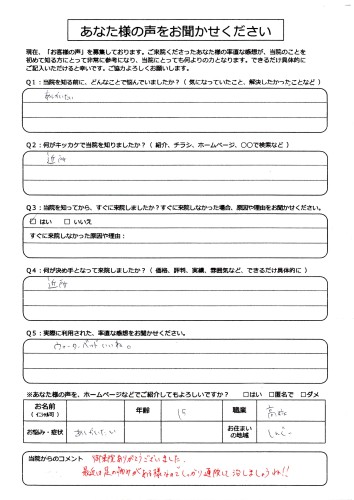 あなた様の声をお聞かせください
現在、「お客様の声」を募集しております。ご来院くださったあなた様の率直な感想が、当院のことを
初めて知る方にとって非常に参考になり、当院にとっても何よりの力となります。できるだけ具体的に
ご記入いただけると幸いです。ご協力よろしくお願いします。
Q1:当院を知る前に、どんなことで悩んでいましたか?(気になっていたこと、解決したかったことなど)
Q2:何がキッカケで当院を知りましたか?(紹介、チラシ、ホームページ、〇〇で検索など)
近所
Q3:当院を知ってから、すぐに来院しましたか?すぐに来院しなかった場合、原因や理由をお聞かせください。
☑ はい □ いいえ
すぐに来院しなかった原因や理由:
Q4:何が決め手となって来院しましたか?(価格、評判、実績、雰囲気など、できるだけ具体的に)
近所
Q5:実際に利用された、率直な感想をお聞かせください。
ウォーターベッドいいね。
※あなた様の声を、ホームページなどでご紹介してもよろしいですか? □はい □匿名で □ダメ
お名前
(イニシャル可)
年齢 15 職業
お悩み・症状 お住まい
の地域
当院からのコメント 御来院ありがとうございました。
最近は足の痛みがある様なのでしっかり通院して治しましょうね!!